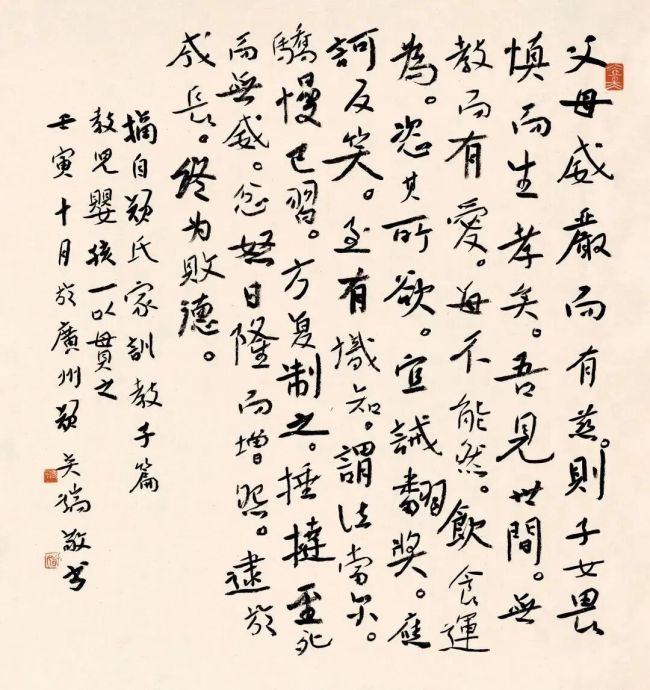 父母威嚴而有慈。則子女畏
慎而生孝矣。吾見世間。無
教而有愛。每不能然。飲食運
為。恣其所欲。宜誡翻獎。應
訶反笑。至有識知。謂法當尔。
驕慢已習。方复制之。捶撻至死
而無威。忿怒日隆而增怨。逮於
成長。终为敗德。
摘自颜氏家訓教子篇
教児嬰孩一以貫之
壬寅十月於廣州 吴敬书